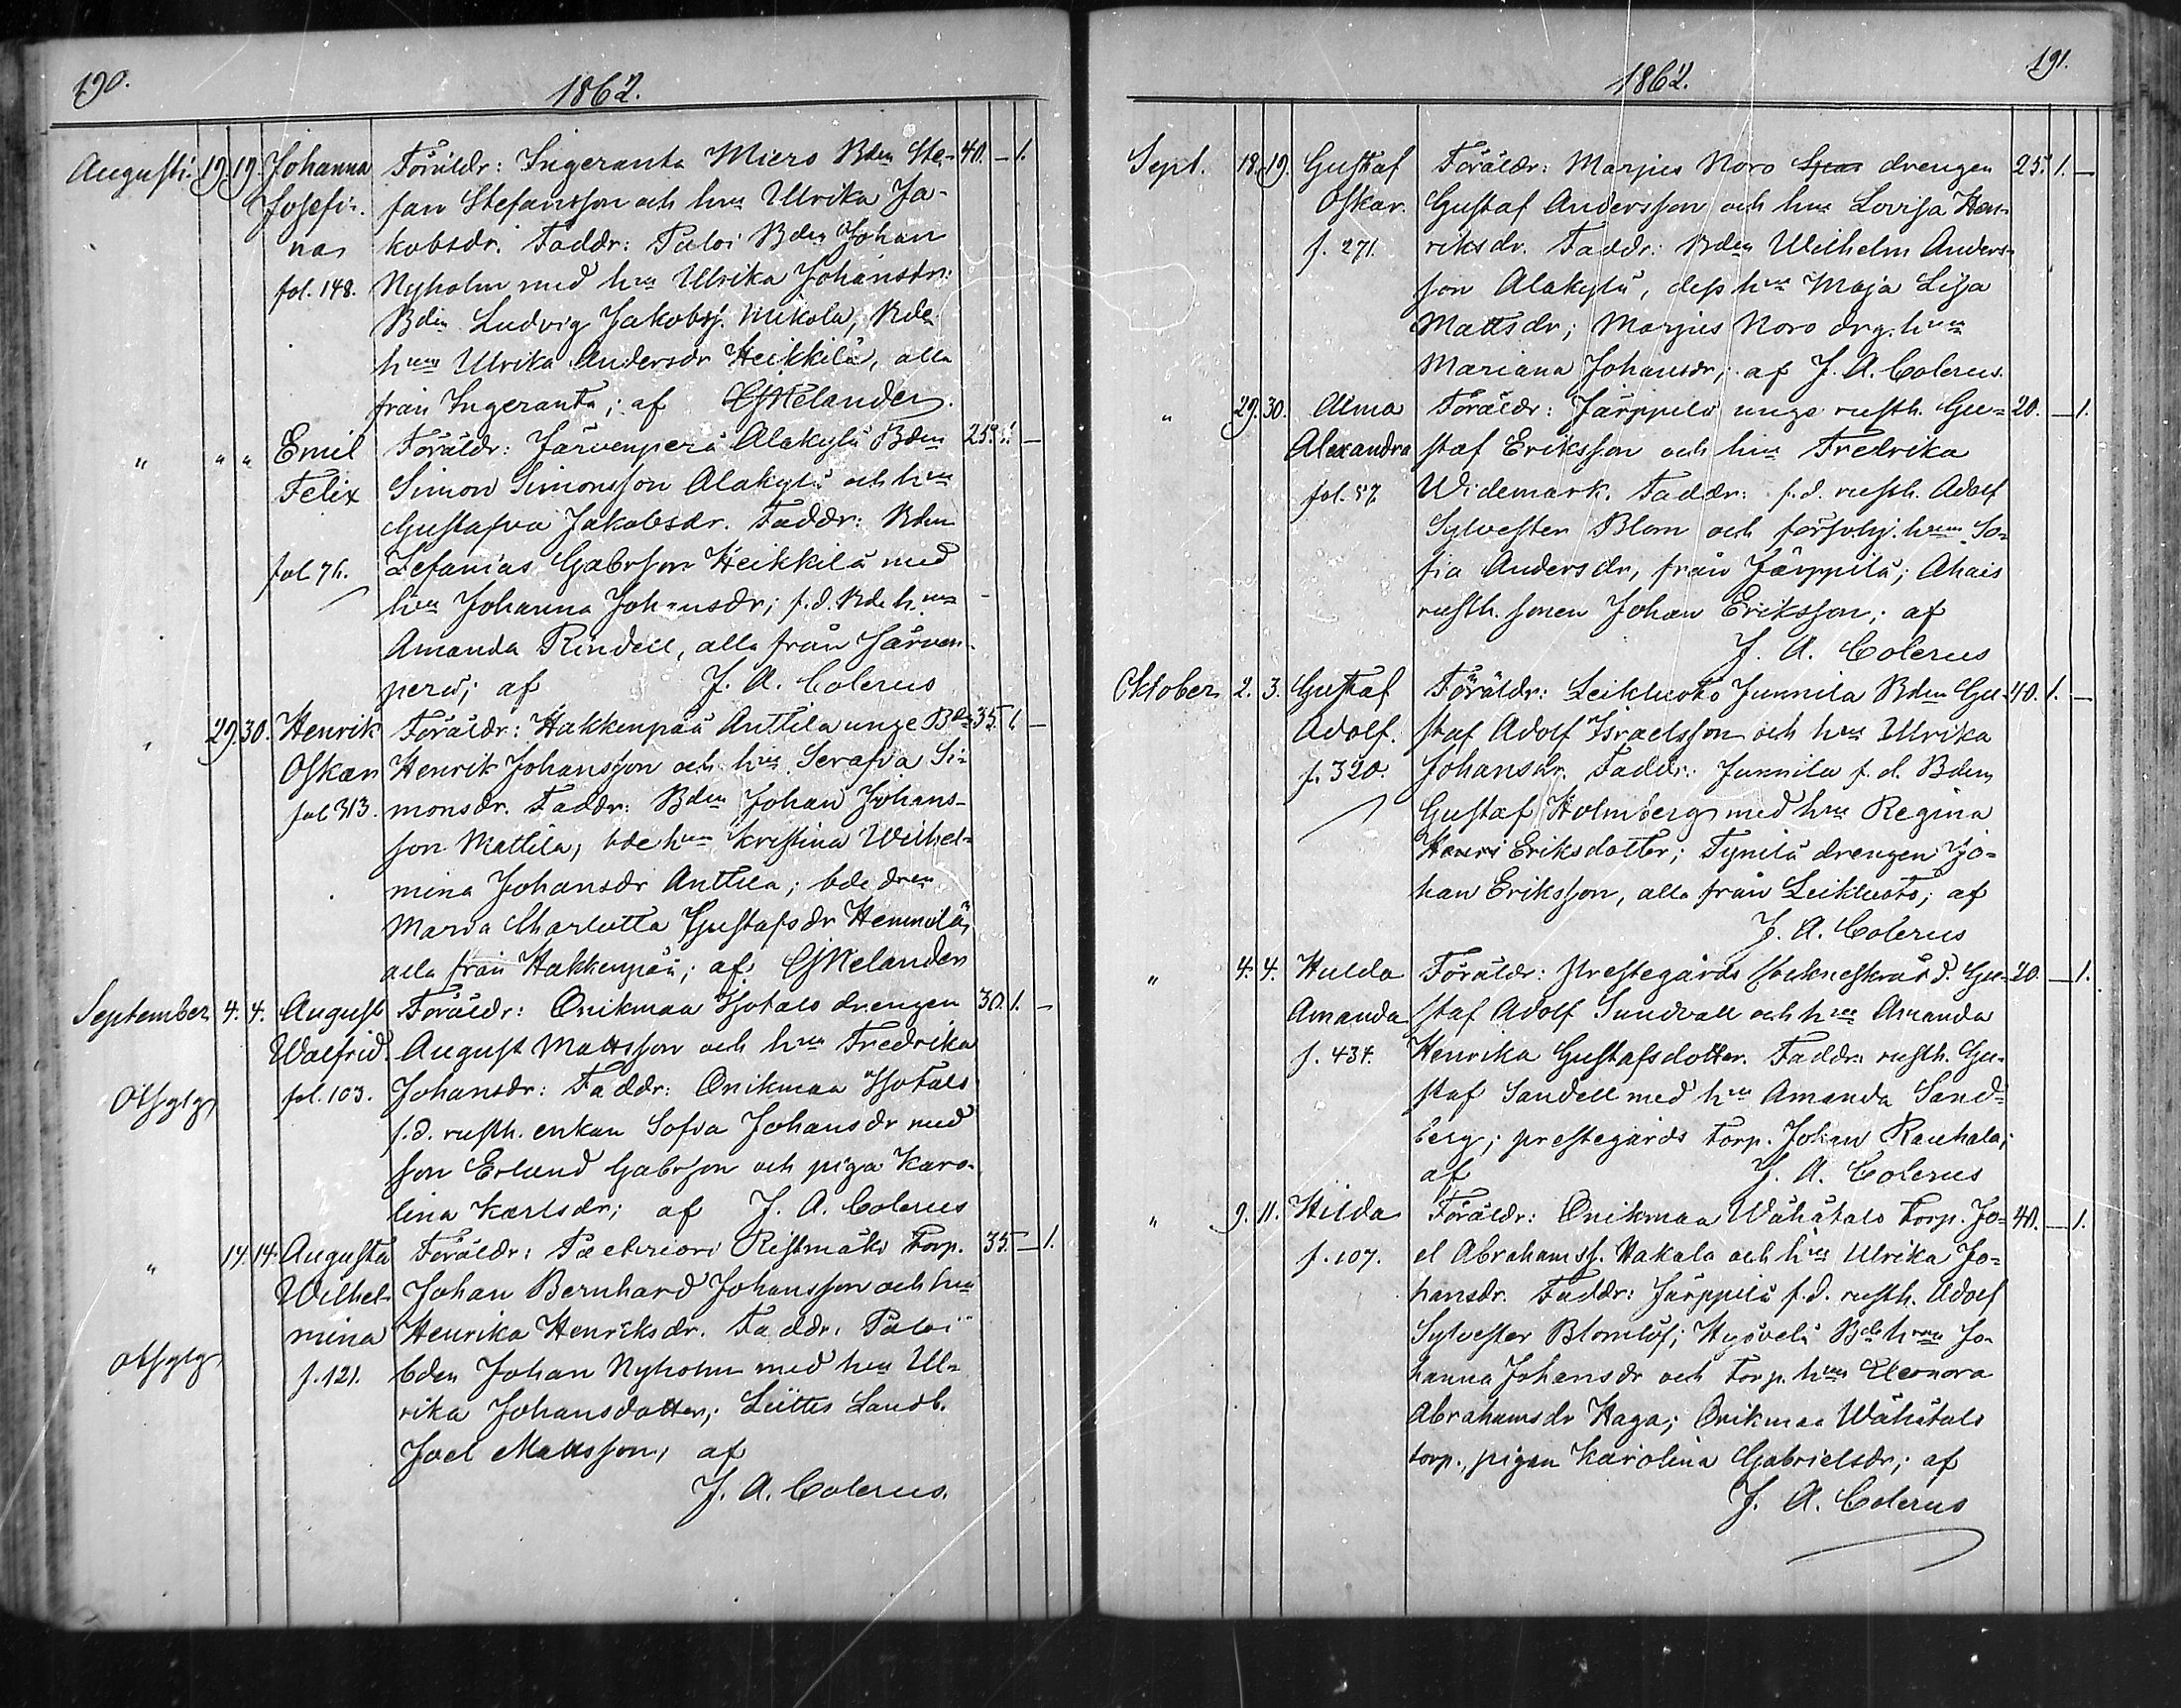 190.
1862.
Augusti. 19. 19. Johanna Föräldr: Ingeranta Miero Bden Ste- 40. - 1.
Josefi- fan Stefansson och hus Ulrika Ja-
na kobsdr. Faddr: Paloi Bden Johan
fol. 148. Nyholm med hu Ulrika Johansdr:
Bden Ludvig Jakobsf. Nikola, Bde
hun Ulrika Andersdr Heikkilä, alla
från Ingeranta; af GMelander.
" " " Emil Föräldr: Järvenperä Alakylä Bden 25. 1. -
Felix Simon Simonsson Alakylä och hu
Gustafva Jakobsdr. Faddr: Bden
fol. 76. Zefanias Gabrson Heikkilä med
hu Johanna Johansdr; f.d. Bde hu
Amanda Rindell, alla från Järven-
perä; af J. A. Colerus
" 29. 30. Henrik Föräldr: Hakkenpää Anttila unge Bd 35. 1. -
Oskar Henrik Johansson och hu Serafia Si-
fol 313. monsdr. Faddr: Bden Johan Johans-
son Mattila, bde hu Kristina Wilhel-
mina Johansdr Anttila; bde dren
Maria Charlotta Gustafsdr Hemmilä,
alla från Hakkenpää; af GMelander
September 4. 4. August Föräldr: Onikmaa Isotalo drengen 30. 1. -
Walfrid. August Mattsson och hu Fredrika
Otsgtg fol. 103. Johansdr: Faddr: Onikmaa Isotalo
f.d. rusth. enkan Sofia Johansdr med
son Erlund Gabrson och piga Karo-
lina Karlsdr; af J. A. Colerus
" 14. 14. Augusta Föräldr: Ristmäki Torp. 35. - 1.
Wilhel- Johan Bernhard Johansson och hu
mina Henrika Henriksdr. Faddr: Paloi
Otsgtg f. 121. bden Johan Nyholm med hu Ul-
rika Johansdotter; Landb.
Joel Mattsson, af
J. A. Colerus.
191.
1862.
Sept. 18. 19. Gustaf Föräldr: Marjus Noro drengen 25. 1. -
Oskar. Gustaf Andersson och hu Lovisa Hen-
f. 271. riksdr. Faddr: Bden Wilhelm Anders-
son Alakylä, dess hu Maja Lisa
Mattsdr; Marjus Noro drg. hun
Mariana Johansdr; af J. A. Colerus.
" 29. 30. Alma Föräldr: Järppilä unge rusth. Gu- 20. - 1.
Alexandra staf Eriksson och hu Fredrika
fol. 57 Widemark. Faddr: f.d. rusth. Adolf
Sylvester Blom och hun So-
fia Andersdr, från Järppilä; Ahais
rusth. sonen Johan Eriksson; af
J. A. Colerus
Oktober 2. 3. Gustaf Föräldr: Leikluoto Junnila Bden Gu- 40. 1. -
Adolf. staf Adolf Israelsson och hu Ulrika
f. 320. Johansdr. Faddr: Junnila f.d. Bden
Gustaf Holmberg med hu Regina
Henri Eriksdotter; Tynilä drengen Jo-
han Eriksson, alla från Leikluoto; af
J. A. Colerus
" 4. 4. Hulda Föräldr: prestegårds f.d. Gu- 20. - 1.
Amanda staf Adolf Sundvall och hu Amanda
f. 434. Henrika Gustafsdotter. Faddr: rusth. Gu-
staf Sandell med hu Amanda Sand-
berg; prestegårds torp. Johan Rauhala;
af J. A. Colerus
" 9. 11. Hilda Föräldr: Onikmaa Wähätalo Torp. Jo- 40. - 1.
f. 107. el Abrahamsf. Hakala och hu Ulrika Jo-
hansdr. Faddr: Järppilä f.d. rusth. Adolf
Sylvester Blomlöf; Hysvelä Bde hun Jo-
hanna Johansdr och Torp. hun Eleonora
Abrahamsdr Haga; Onikmaa Wähätalo
torp., pigan Karolina Gabrielsdr; af
J. A. Colerus